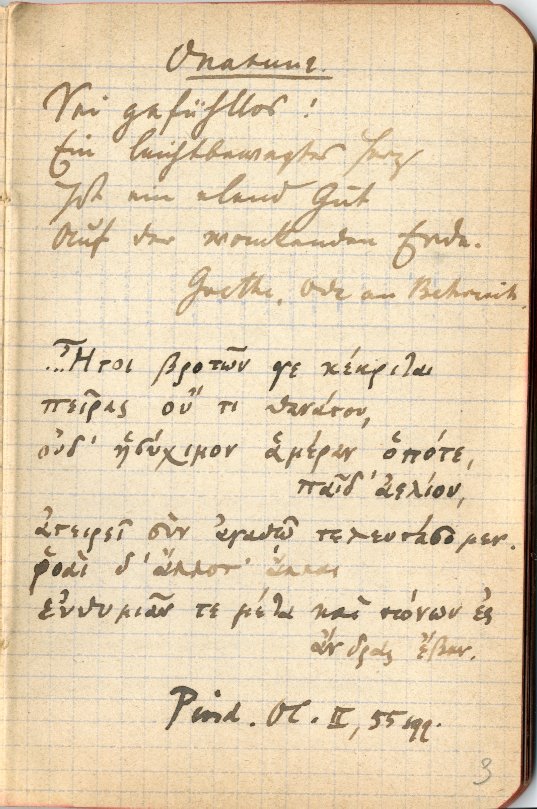 Sei gefühllos!
Ein leichtbewegtes Herz
Ist ein elend Gut
Auf der wankenden Erde.
Goethe, Ode an Behrisch.
...Ἤτοι βροτῶν γε κέκριται
πεῖρας οὔ τι θανάτου,
οὐδ' ἡσύχιμον ἁμέραν ὁπότε,
παῖδ' ἀελίου,
ἀτειρεῖ σὺν ἀγαθῷ τελευτάσομεν.
ῥοαὶ δ' ἄλλοτ' ἄλλαι
εὐθυμιᾶν τε μέτα καὶ πόνων ἐς
ἄνδρας ἔβαν.
Pind. Ol. II, 55 sqq.
3